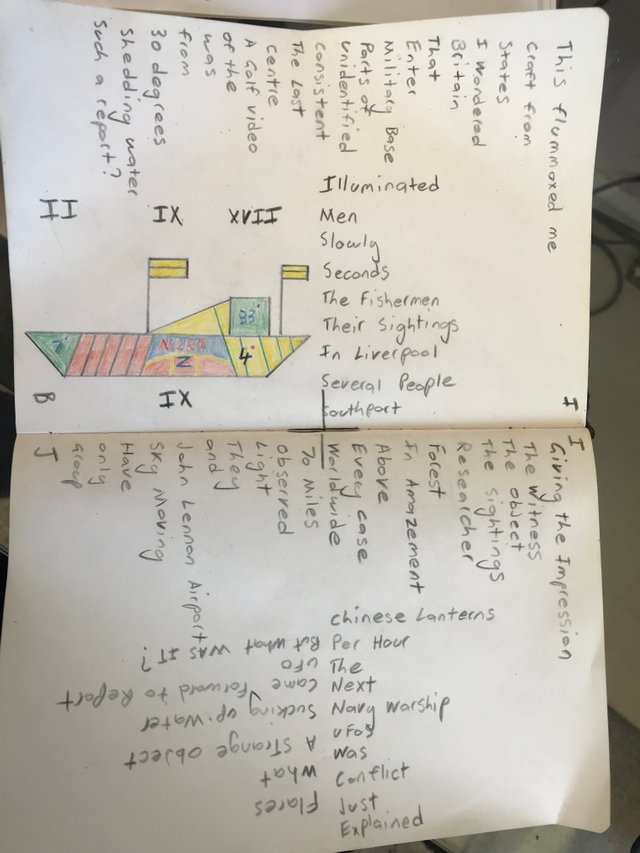 This flummoxed me
craft from
States
I wondered
Britain
That
Enter
Military Base
Parts of
unidentified
consistent
The Last
centre
A Golf video
of the
was
from
30 degrees
shedding water
such a report?
Illuminated
Men
Slowly
Seconds
The Fishermen
Their Sightings
In Liverpool
Several People
Southport
II
IX
XVII
33°
N
4°
IX
B
I
I
Giving the Impression
The witness
The object
The sightings
Researcher
Forest
In Amazement
Above
Every case
Worldwide
70 Miles
Observed
Light
They
and
John Lennon Airport
Sky Moving
Have
only
Group
J
Chinese Lanterns
Per Hour
The
Next
Navy Warship
UFOs
Was
Conflict
Just
Explained
Flares
what
A Strange object
Sucking up water
came forward to Report
UFO
But what was IT?